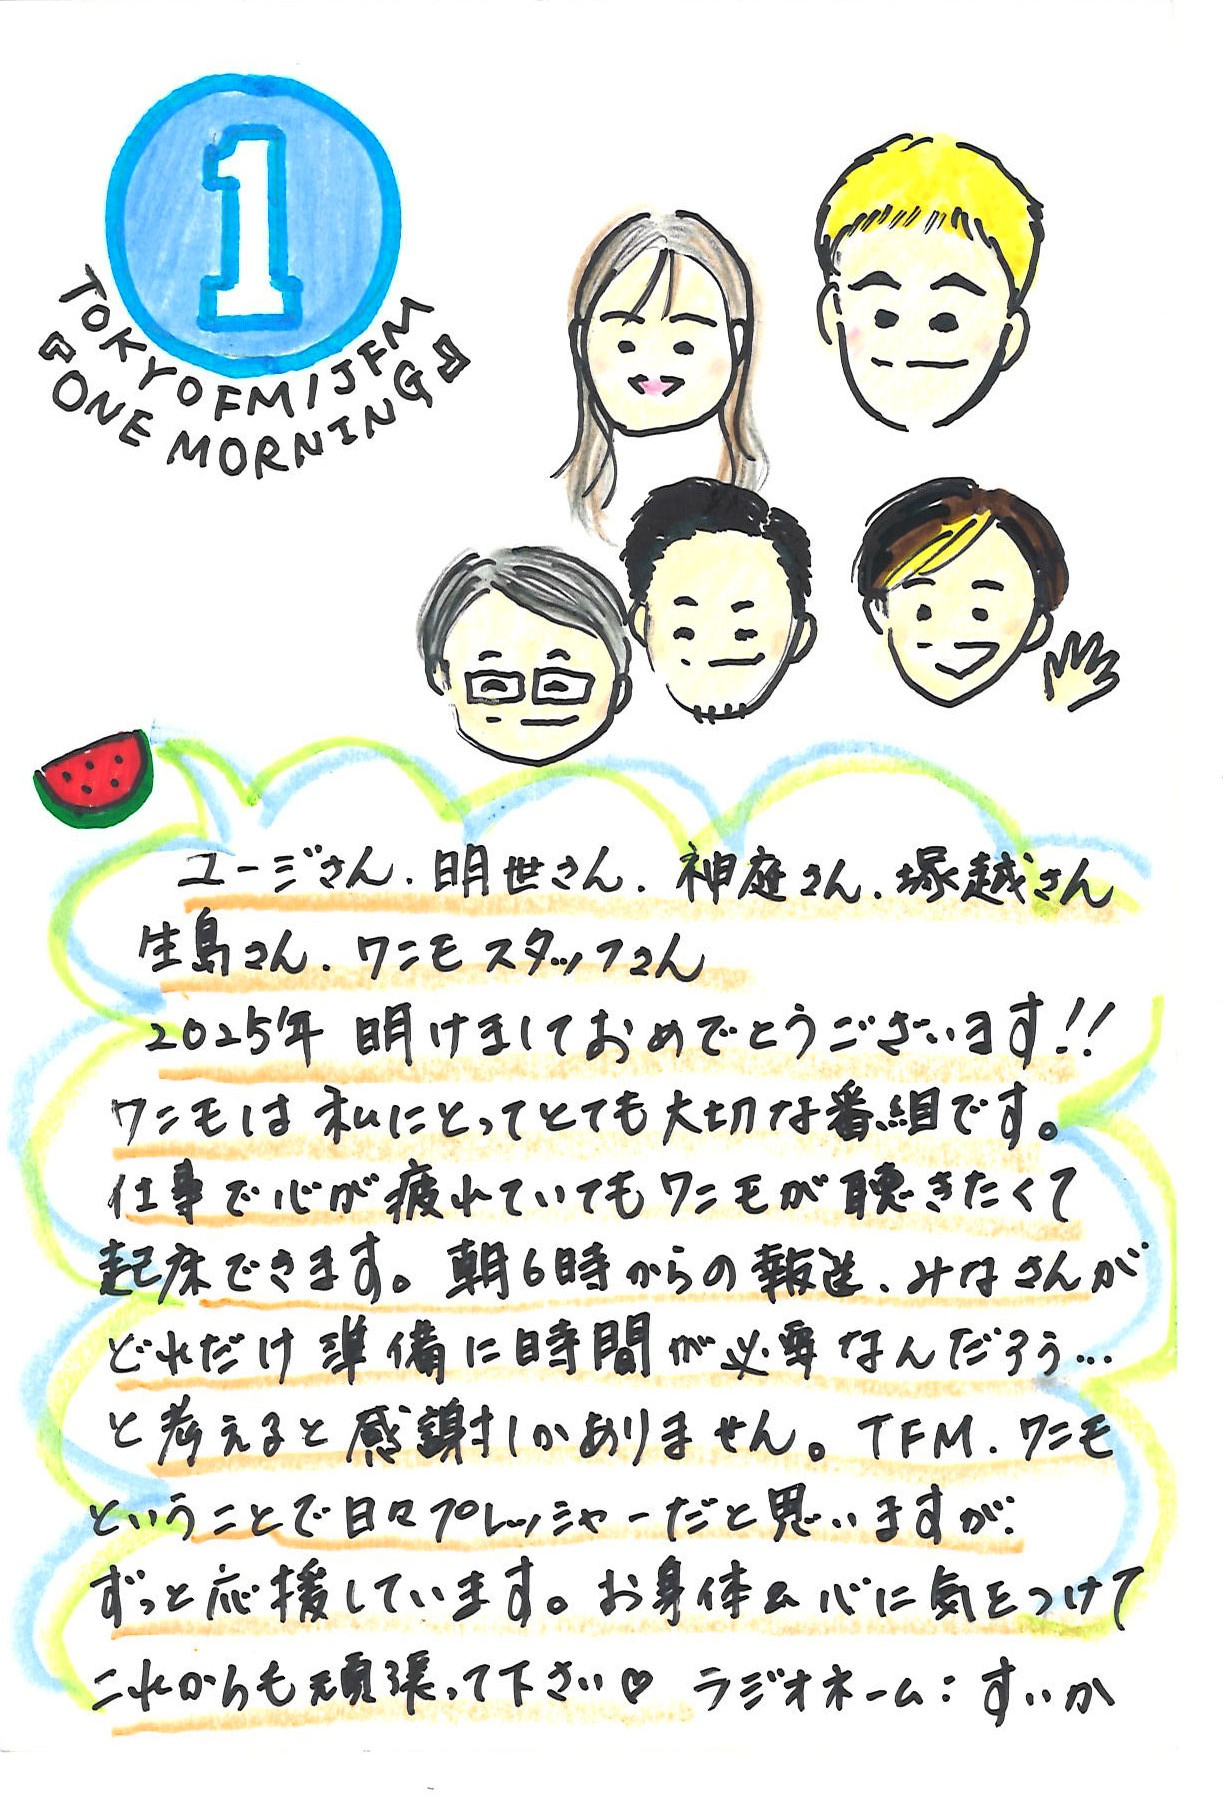 1
TOKYO FM/JFM
『ONE MORNING』
ユージさん.明世さん.神庭さん.塚越さん
生島さん.ワニモスタッフさん
2025年 明けましておめでとうございます!!
ワニモは私にとってとても大切な番組です。
仕事で心が疲れていてもワニモが聴きたくて
起床できます。朝6時からの報送、みなさんが
どれだけ準備に時間が必要なんだろう…
と考えると感謝しかありません。TFM.ワニモ
ということで日々プレッシャーだと思いますが、
ずっと応援しています。お身体&心に気をつけて
これからも頑張って下さい♡ ラジオネーム:すいか